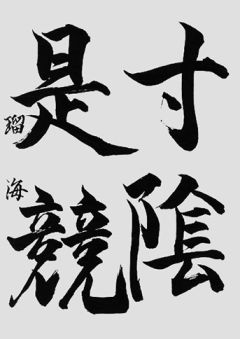 寸陰
是競
瑠海